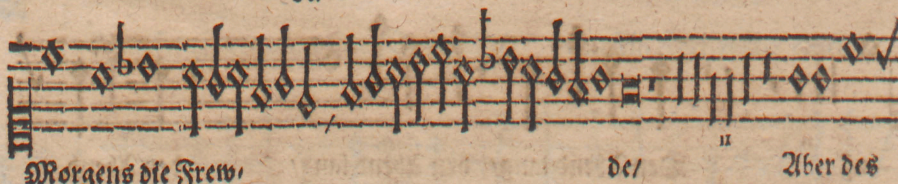 11
Morgens die Frew, de/ Aber des